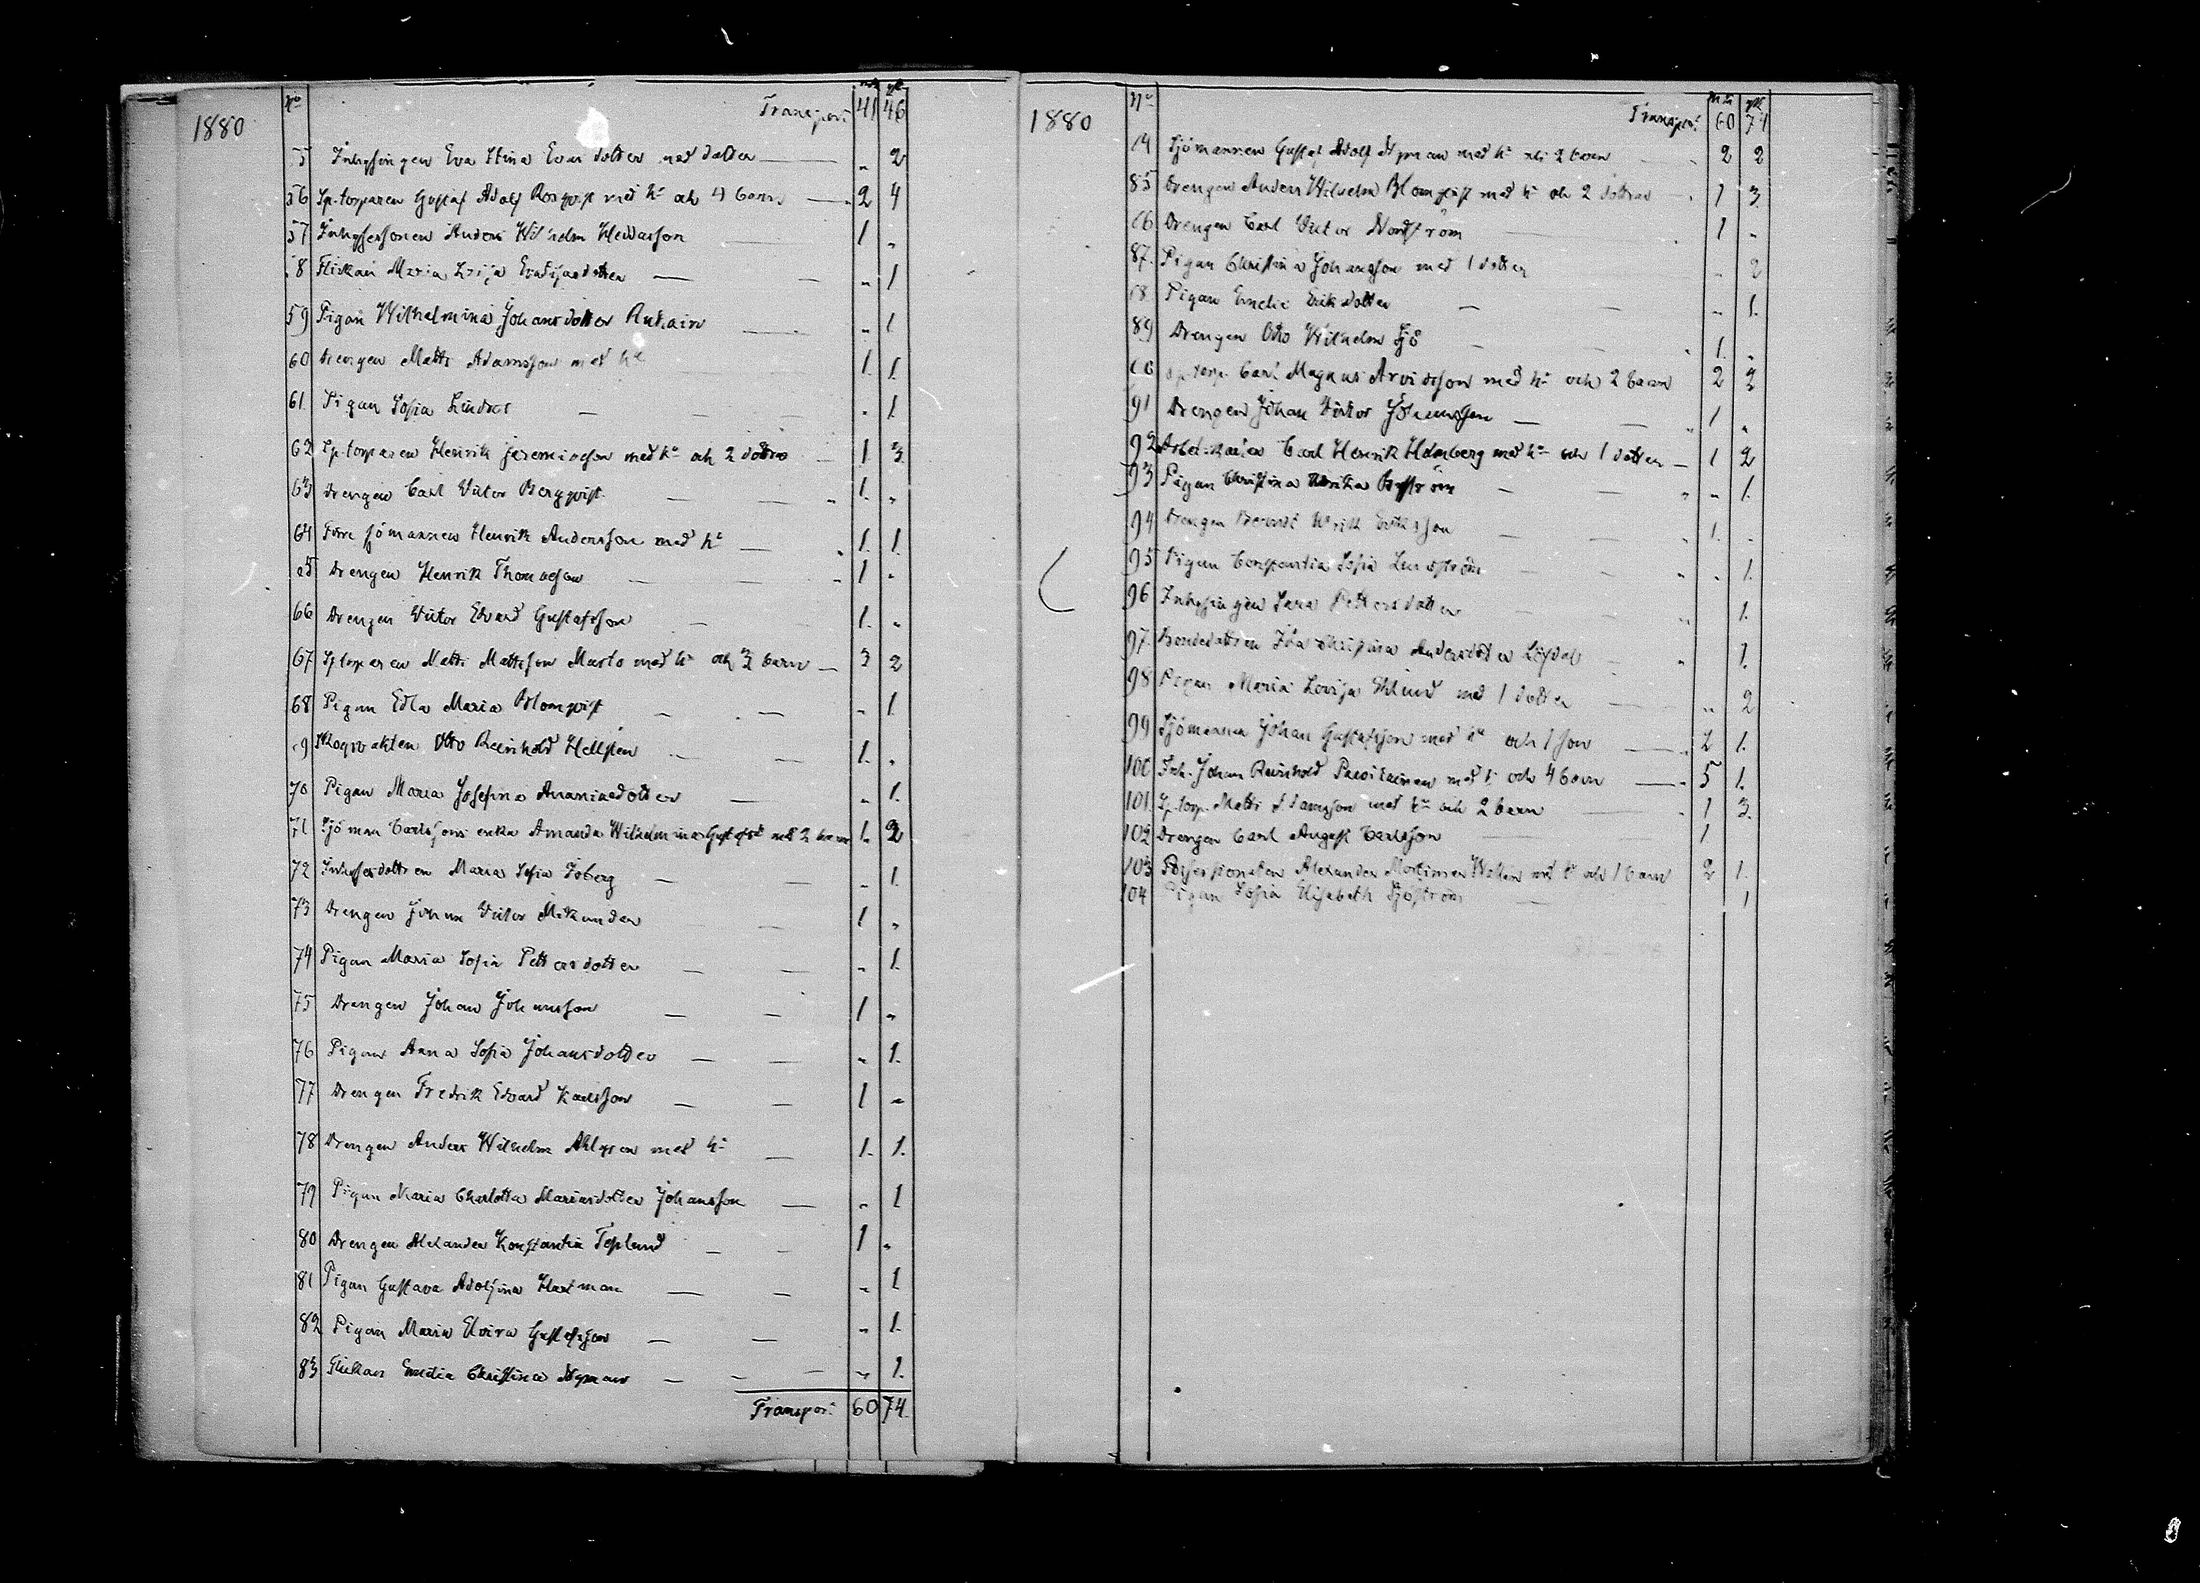 1880
No mk qk
Transport 41 46
55 Inhysingen Eva Stina Evasdotter med dotter — „ 2
56 Sp. torparen Gustaf Adolf Rosqvist med h- och 4 barn — 2 4
57 Inhysessonen Anders Wilhelm Hellasson 1 „
58 Flickan Maria Lovisa — „ 1
59 Pigan Wilhelmina Johansdotter — „ 1
60 Drengen Matts Adamsson med hu 1. 1.
61. Pigan Sofia Linders — „ 1.
62 Sp. torparen Henrik Jeremiasson med hu och 2 döttrar — 1 3
63 Drengen Carl Victor Bergqvist — 1. „
64 Förre sjömannen Henrik Andersson med hu — 1. 1.
65 Drengen Henrik Thomasson — 1 „
66 Drengen Victor Edvard Gustafsson — 1. „
67 Sp. torparen Matts Mattsson Marlo med hu och 3 barn — 3 2
68 Pigan Edla Maria Blomqvist — „ 1.
69 Skogvakten Otto Reinhold Hellsten 1. „
70 Pigan Maria Josefina Ananiaedotter — „ 1.
71 Sjöman Carlssons enka Amanda Wilhelmina Gustafsd med 2 barn 1. 2
72 Inhysesdottren Maria Sofia Isberg — „ 1.
73 Drengen Johan Victor Mikander — 1 „
74 Pigan Maria Sofia Pettersdotter — „ 1.
75 Drengen Johan Johansson — 1 „
76 Pigan Anna Sofia Johansdotter — „ 1.
77 Drengen Fredrik Edvard Karlsson — 1 „
78 Drengen Anders Wilhelm Ahlgren med h- — 1. 1.
79 Pigan Maria Charlotta Mariasdotter Johansson — „ 1
80 Drengen Alexander Konstantin Teplund — 1 „
81 Pigan Gustava Adolfina Hartman — „ 1
82 Pigan Maria Elvira Gustafsson — „ 1.
83 Flickan Emilia Christina Nyman — „ 1.
Transport 60 74.
1880
No mk qk
Transport 60 74
84 Sjömannen Gustaf Adolf Nyman med h- och 2 barn 2 2
85 Drengen Anders Wilhelm Blomqvist med h- och 2 döttrar 1 3.
86 Drengen Carl Victor Nordström 1 „
87. Pigan Christina Johansson med 1 dotter „ 2
88 Pigan Emelie Eriksdotter — „ 1.
89 Drengen Otto Wilhelm Sjö — 1. „
90 Sp. torp. Carl Magnus Arvidsson med h- och 2 barn 2 2
91 Drengen Johan Victor Johansson — 1 „
92 Arbetskarlen Carl Henrik Holmberg med h- och 1 dotter — 1 2
93 Pigan Christina Ulrika — „ 1.
94 Drengen Berndt Ulrik Eriksson — 1. „
95 Pigan Constantia Sofia Lundström — „ 1.
96 Inhysingen Sara Pettersdotter „ 1.
97. Bondedottren Ida Christina Andersdotter „ 1.
98 Pigan Maria Lovisa Eklund med 1 dotter — „ 2
99 Sjömannen Johan Gustafsson med hu och 1 son — 2 1.
100 Inh. Johan Reinhold med h- och 4 barn — 5 1.
101. Sp. torp. Matts Adamsson med hu och 2 barn 1 3.
102 Drengen Carl August Carlsson 1
103 Possessionaten Alexander Mortimer Wallen med hu och 1 barn 2 1.
104 Pigan Sofia Elisabeth Sjöström — 1